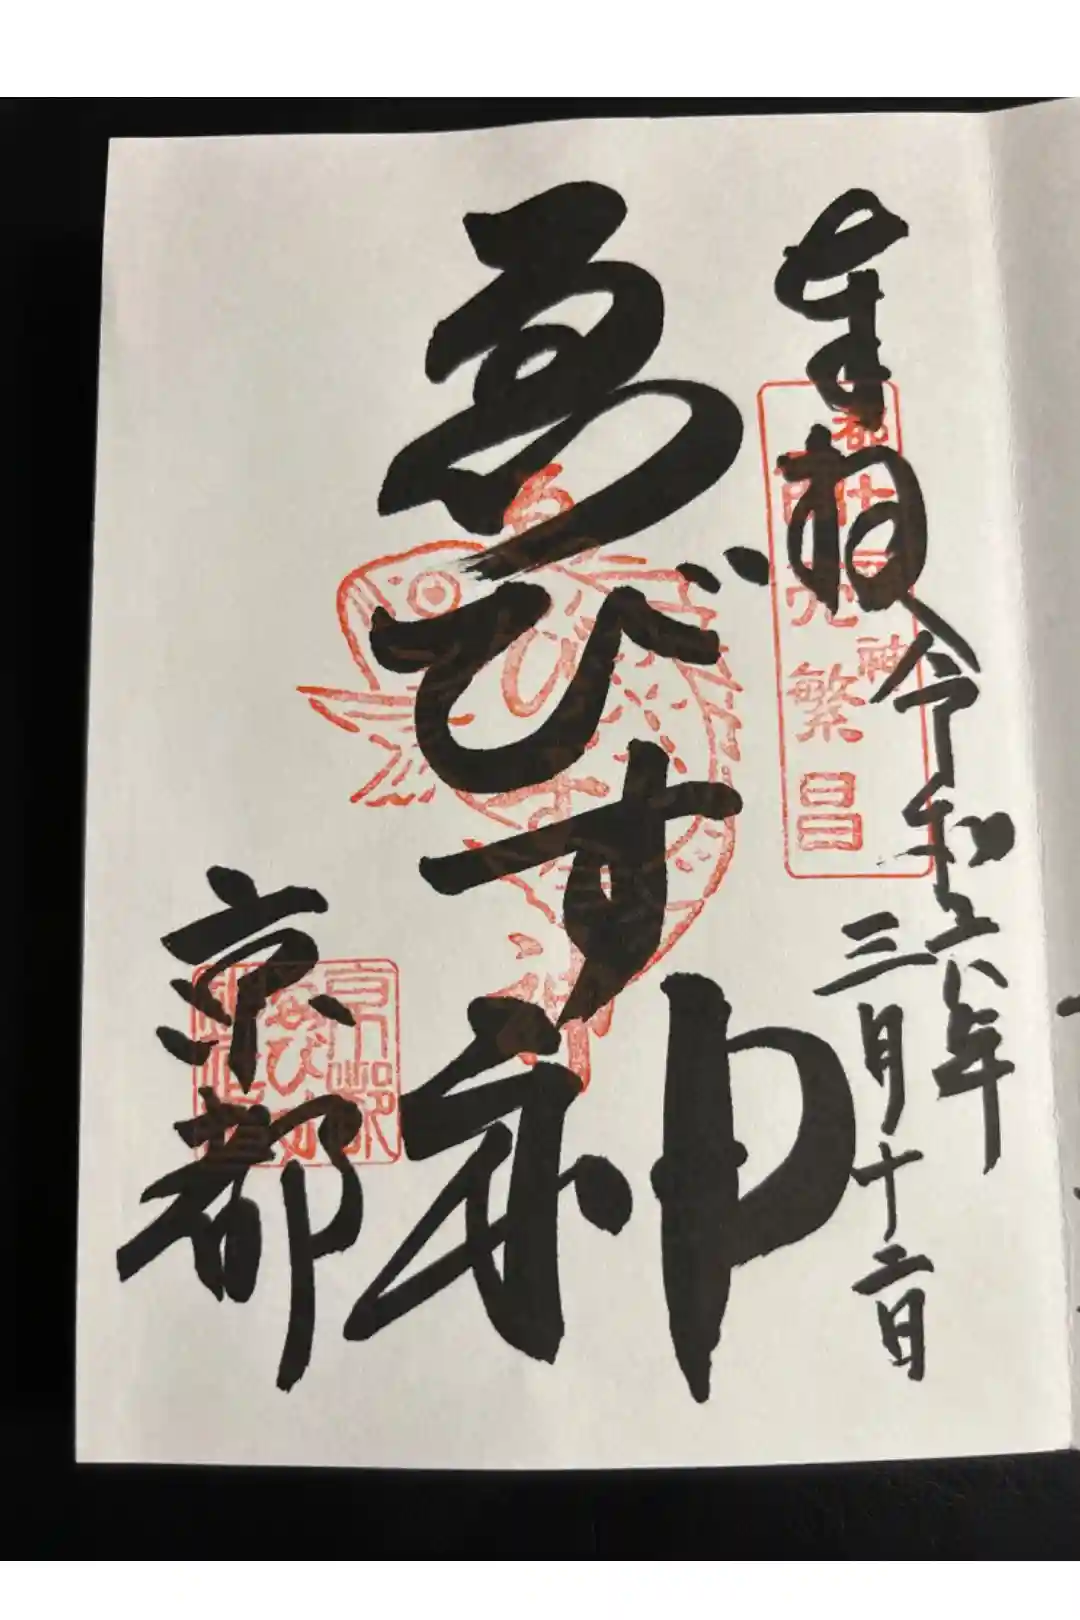 奉拝
令和六年
三月十二日
都
神
繁昌
ゑびす神
京都
京都
ゑびす